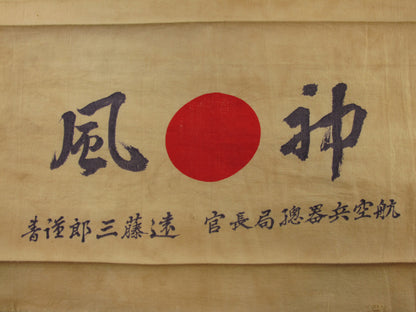 神風
航空兵器總局長官 遠藤三郎謹書